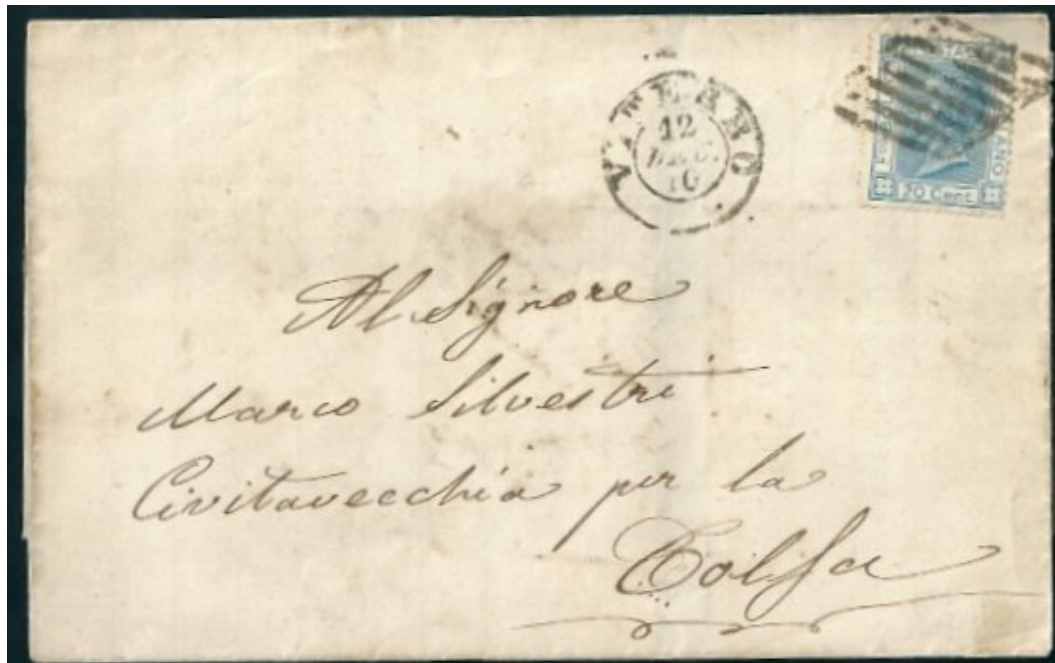 12
DEC.
20 Cent.
Al Signore
Marco Silvestri
Civitavecchia per la
Tolfa